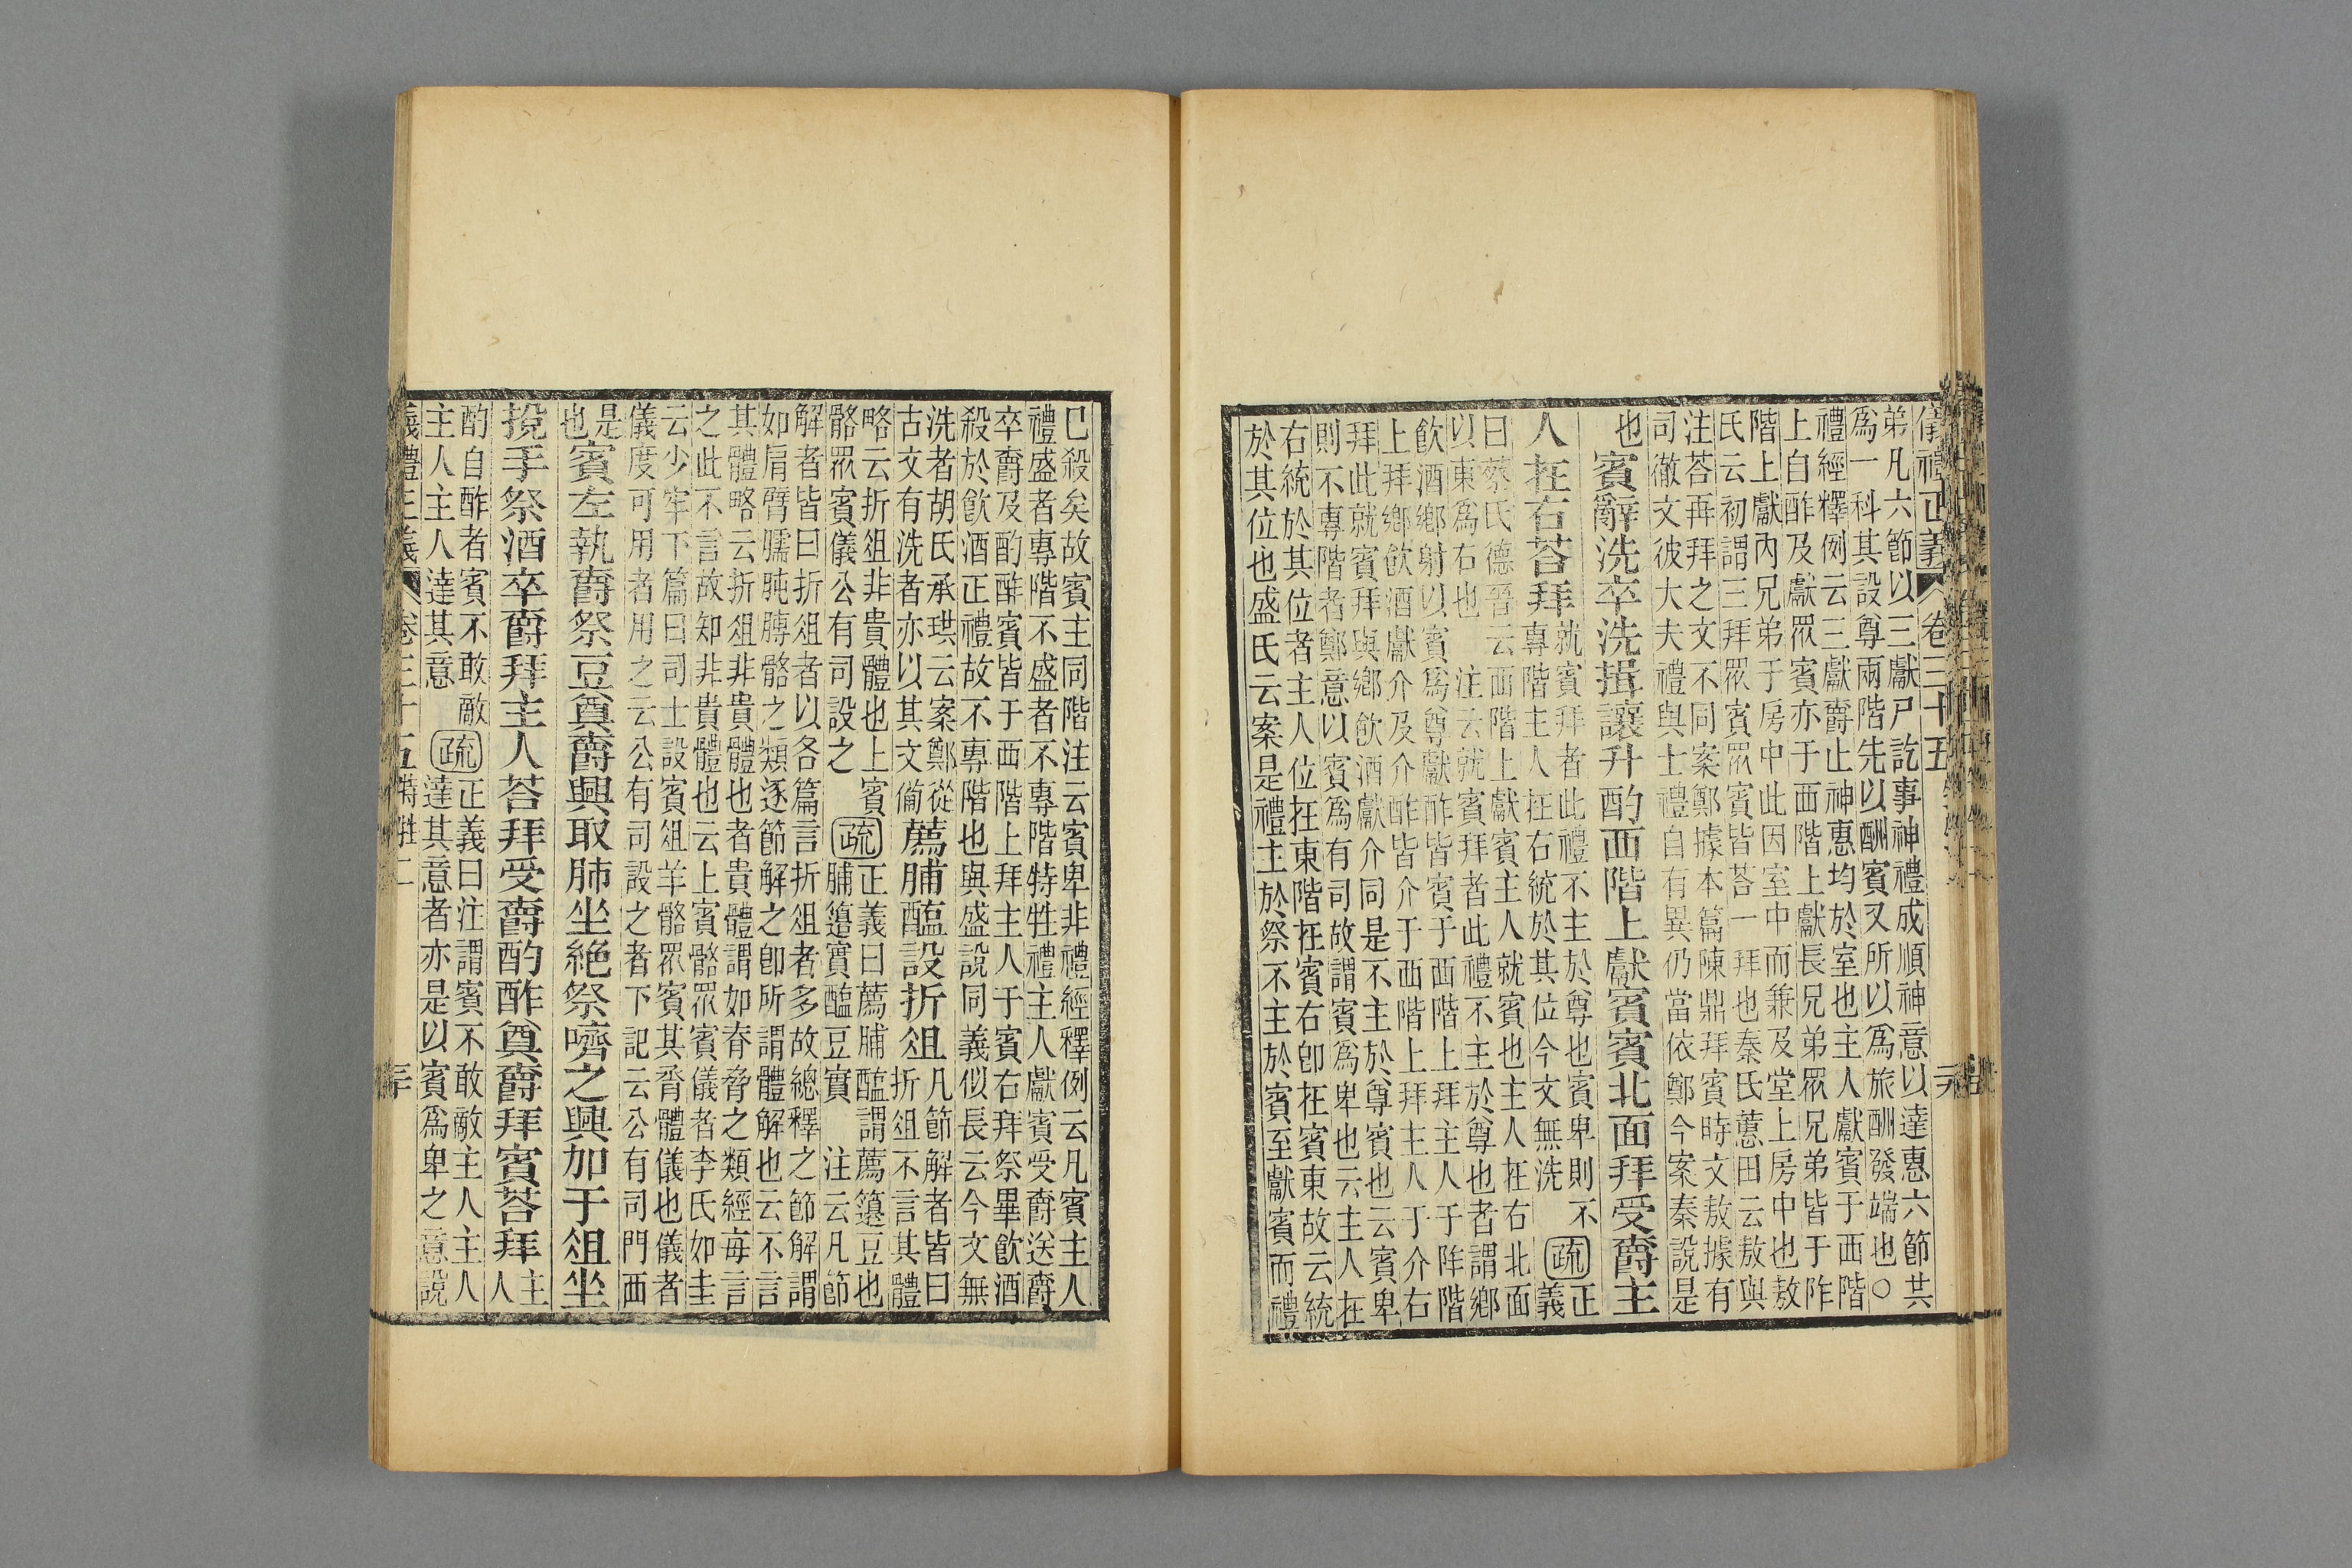 儀禮正義 卷三十五
弟凡六節以三獻尸訖事神禮成順神意以達惠六節共
爲一科其設尊兩階先以酬賓又所以爲旅酬發端也○
禮經釋例云三獻爵止神惠均於室也主人獻賓于西階
上自酢及獻眾賓亦于西階上獻長兄弟眾兄弟皆于阼
階上獻內兄弟于房中此因室中而兼及堂上房中也敖
氏云初謂三拜眾賓眾賓皆荅一拜也秦氏蕙田云敖與
注荅再拜之文不同案鄭據本篇陳鼎拜賓時文敖據有
司徹文彼大夫禮與士禮自有異仍當依鄭今案秦說是
也賓辭洗卒洗揖讓升酌西階上獻賓賓北面拜受爵主
人在右荅拜就賓拜者此禮不主於尊也賓卑則不
專階主人在右統於其位今文無洗疏正
義
曰蔡氏德晉云西階上獻賓主人就賓也主人在右北面
以東爲右也 注云就賓拜者此禮不主於尊也者謂鄉
飲酒鄉射以賓爲尊獻酢皆賓于西階上拜主人于阼階
上拜鄉飲酒獻介及介酢皆介于西階上拜主人于介右
拜此就賓拜與鄉飲酒獻介同是不主於尊賓也云賓卑
則不專階者鄭意以賓爲有司故謂賓爲卑也云主人在
右統於其位者主人位在東階在賓右卽在賓東故云統
於其位也盛氏云案是禮主於祭不主於賓至獻賓而禮
已殺矣故賓主同階注云賓卑非禮經釋例云凡賓主人
禮盛者專階不盛者不專階特牲禮主人獻賓受爵送爵
卒爵及酌酢賓皆于西階上拜主人于賓右拜祭畢飲酒
殺於飲酒正禮故不專階也與盛說同義似長云今文無
洗者胡氏承珙云案鄭從
古文有洗者亦以其文備薦脯醢設折俎凡節解者皆曰
折俎不言其體
略云折俎非貴體也上賓
骼眾賓儀公有司設之疏正義曰薦脯醢謂薦籩豆也
脯籩實醢豆實 注云凡節
解者皆曰折俎者以各篇言折俎者多故總釋之節解謂
如肩臂臑肫膊骼之類逐節解之卽所謂體解也云不言
其體略云折俎非貴體也者貴體謂如脊脅之類經每言
之此不言故知非貴體也云上賓骼眾賓儀者李氏如圭
云少牢下篇曰司士設賓俎羊骼眾賓其脀體儀也儀者
儀度可用者用之云公有司設之者下記云公有司門西
是
也賓左執爵祭豆奠爵興取肺坐絕祭嚌之興加于俎坐
挩手祭酒卒爵拜主人荅拜受爵酌酢奠爵拜賓荅拜主
人
酌自酢者賓不敢敵
主人主人達其意疏正義曰注謂賓不敢敵主人主人
達其意者亦是以賓爲卑之意說
儀禮正義 卷三十五特牲二